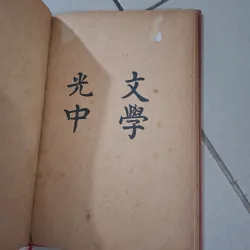 文學
光中